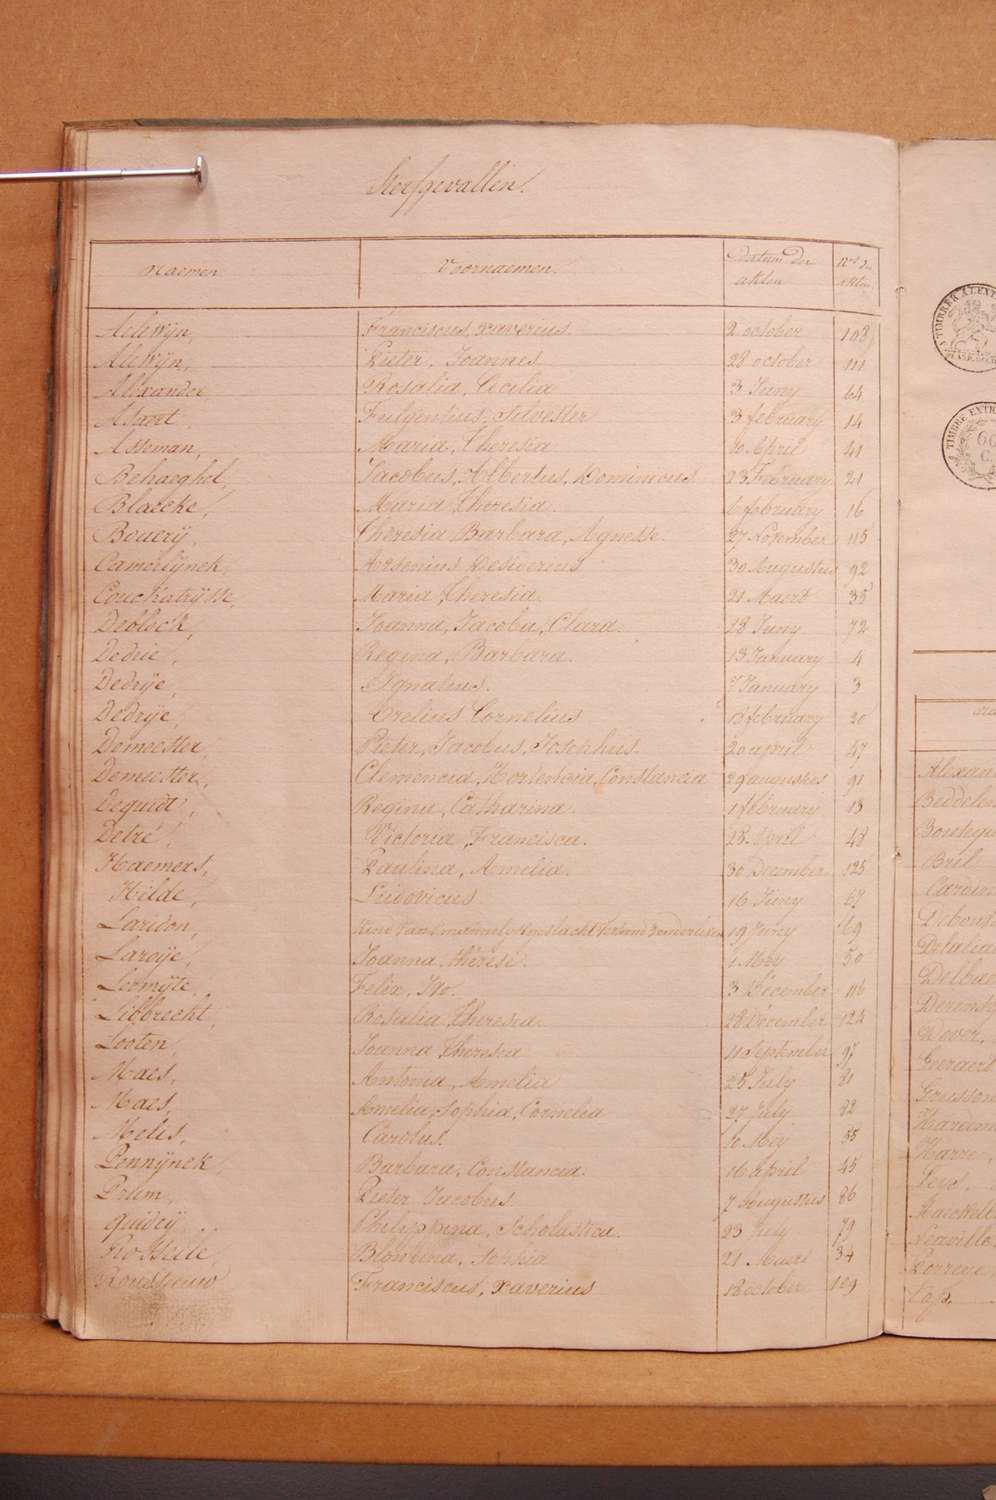 Sterfgevallen.
Naemen Voornaemen. Datum der akten N.os der akten
Aelewijn, Franciscus, Xaverius 2 october 108
Alewijn, Pieter, Joannes 28 october 111
Alexander Rosalia, Cecilia 3 Juny 64
Asaert Fulgentius, Silvester 3 february 14
Asseman, Maria, Theresia 10 April 41
Behaeghel, Jacobus, Albertus, Dominicus 23 February 21
Blaecke, Maria Theresia 6 february 16
Bouery, Theresia Barbara, Agnesse. 27 November 115
Camerlynck, Arsenius Desiderius 30 Augustus 92
Couchatrysse, Maria Theresia. 21 Maert 35
Deblock, Joanna, Jacoba, Clara. 28 Juny 72
Dedrie, Regina, Barbara. 13 January 4
Dedrije, Ignatius. 7 January 3
Dedrije, Orelius Cornelius 18 february 20
Demeester, Pieter, Jacobus, Josephus. 20 april 47
Demeester, Clemencia, Hortentsia, Constancia 29 augustus 91
Dequidt, Regina, Catharina. 1 february 13
Detré. Victoria, Francisca. 23 April 48
Haemers, Paulina, Amelia. 30 December 125
Hilde, Ludovicus 16 Juny 67
Laridon, Kind van 19 Juny 69
Laroije, Joanna, thérèse. 1 Mey 50
Lermyte, Felix, Ivo. 3 Décember 116
Libbrecht, Rosalia Theresia. 28 December 124
Looten, Joanna Theresia 11 September 97
Maes, Antonia, Amelia 25 July 81
Maes, Amelia, Sophia, Cornelia 27 July 82
Melis, Carolus. 10 Mey 55
Pennynck, Barbara, Constancia. 16 april 45
Prum, Pieter Jacobus. 7 Augustus 86
Quidey, Philippina, Scholastica. 23 July 79
Rosselle, Blondina, Sophia 21 Maert 34
Rousseeuw Franciscus, Xaverius 18 october 109
A TIMBRER A L'EXTR
TIMBRE EXTR
60
C.
Alexan
Beddelen
Bril
Cardin
Delbae
Dever,
Geeraert
Goussen
Harre,
Leys.